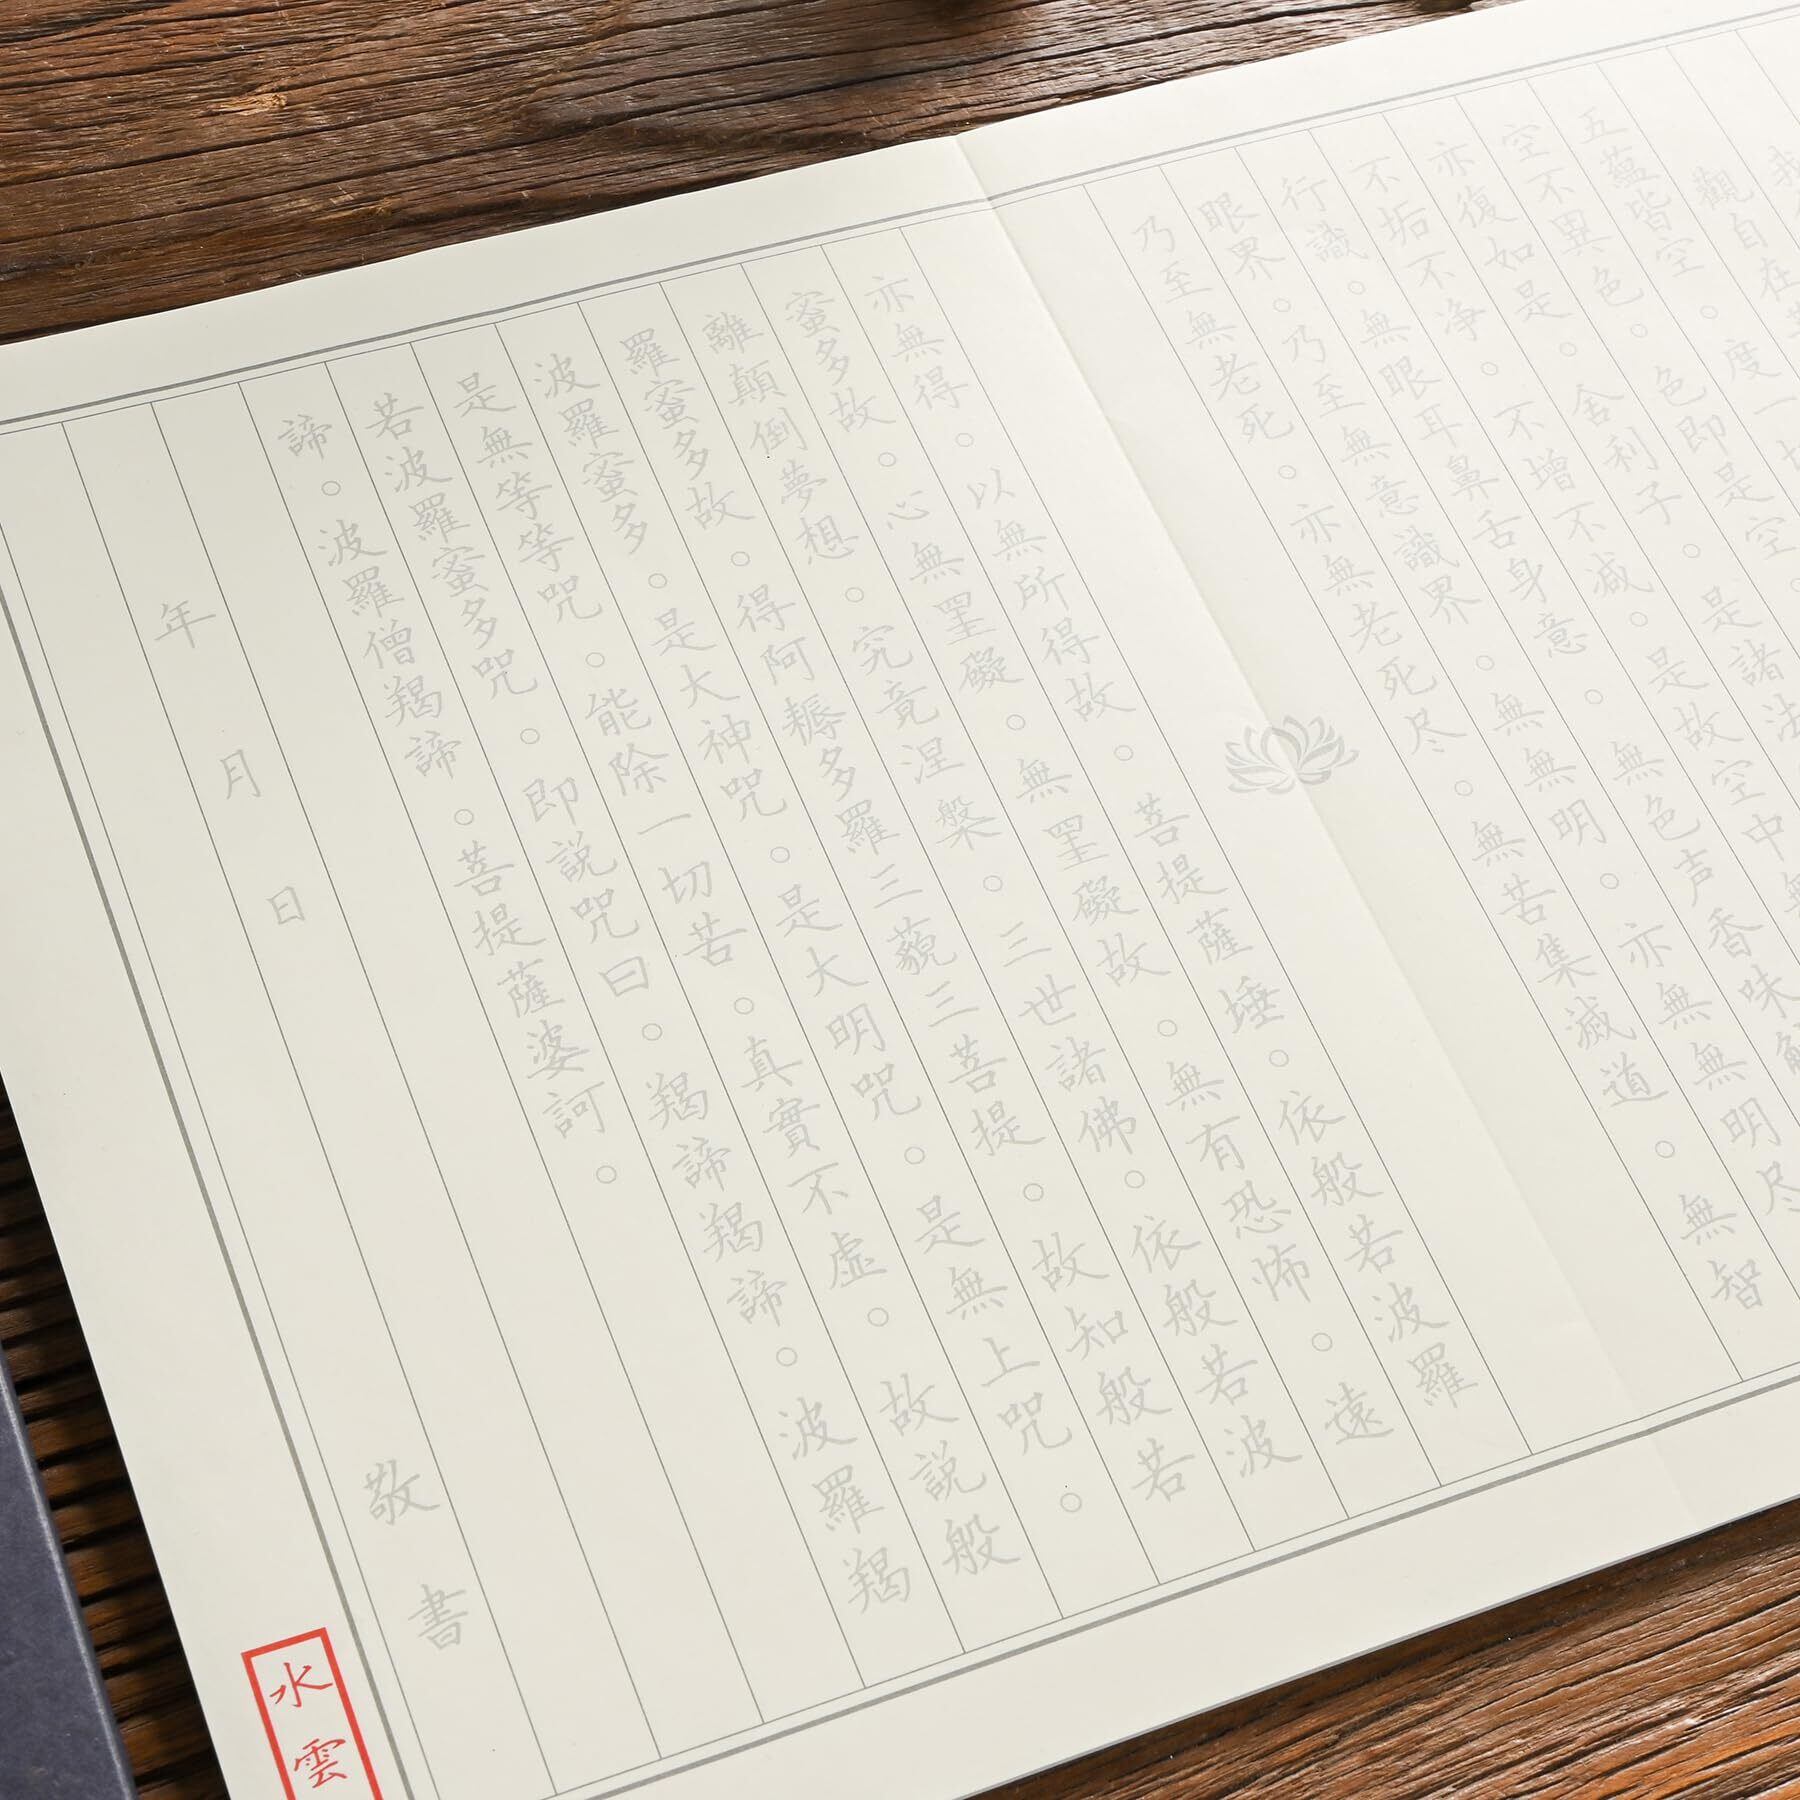 觀自在
五蘊皆空。度一切
空不異色。色即是空
亦復如是。舍利子。是諸法
不垢不净。不增不减。是故空中無
行識。無眼耳鼻舌身意。無色声香味
眼界。乃至無意識界。無無明。亦無無明尽
乃至無老死。亦無老死尽。無苦集滅道。無智
亦無得。以無所得故。菩提薩埵。依般若波羅
蜜多故。心無罣礙。無罣礙故。無有恐怖。遠
離顛倒夢想。究竟涅槃。三世諸佛。依般若波
羅蜜多故。得阿耨多羅三藐三菩提。故知般若
波羅蜜多。是大神咒。是大明咒。是無上咒。
是無等等咒。能除一切苦。真實不虛。故説般
若波羅蜜多咒。即説咒曰。羯諦羯諦。波羅羯
諦。波羅僧羯諦。菩提薩婆訶。
年 月 日 敬書
水雲